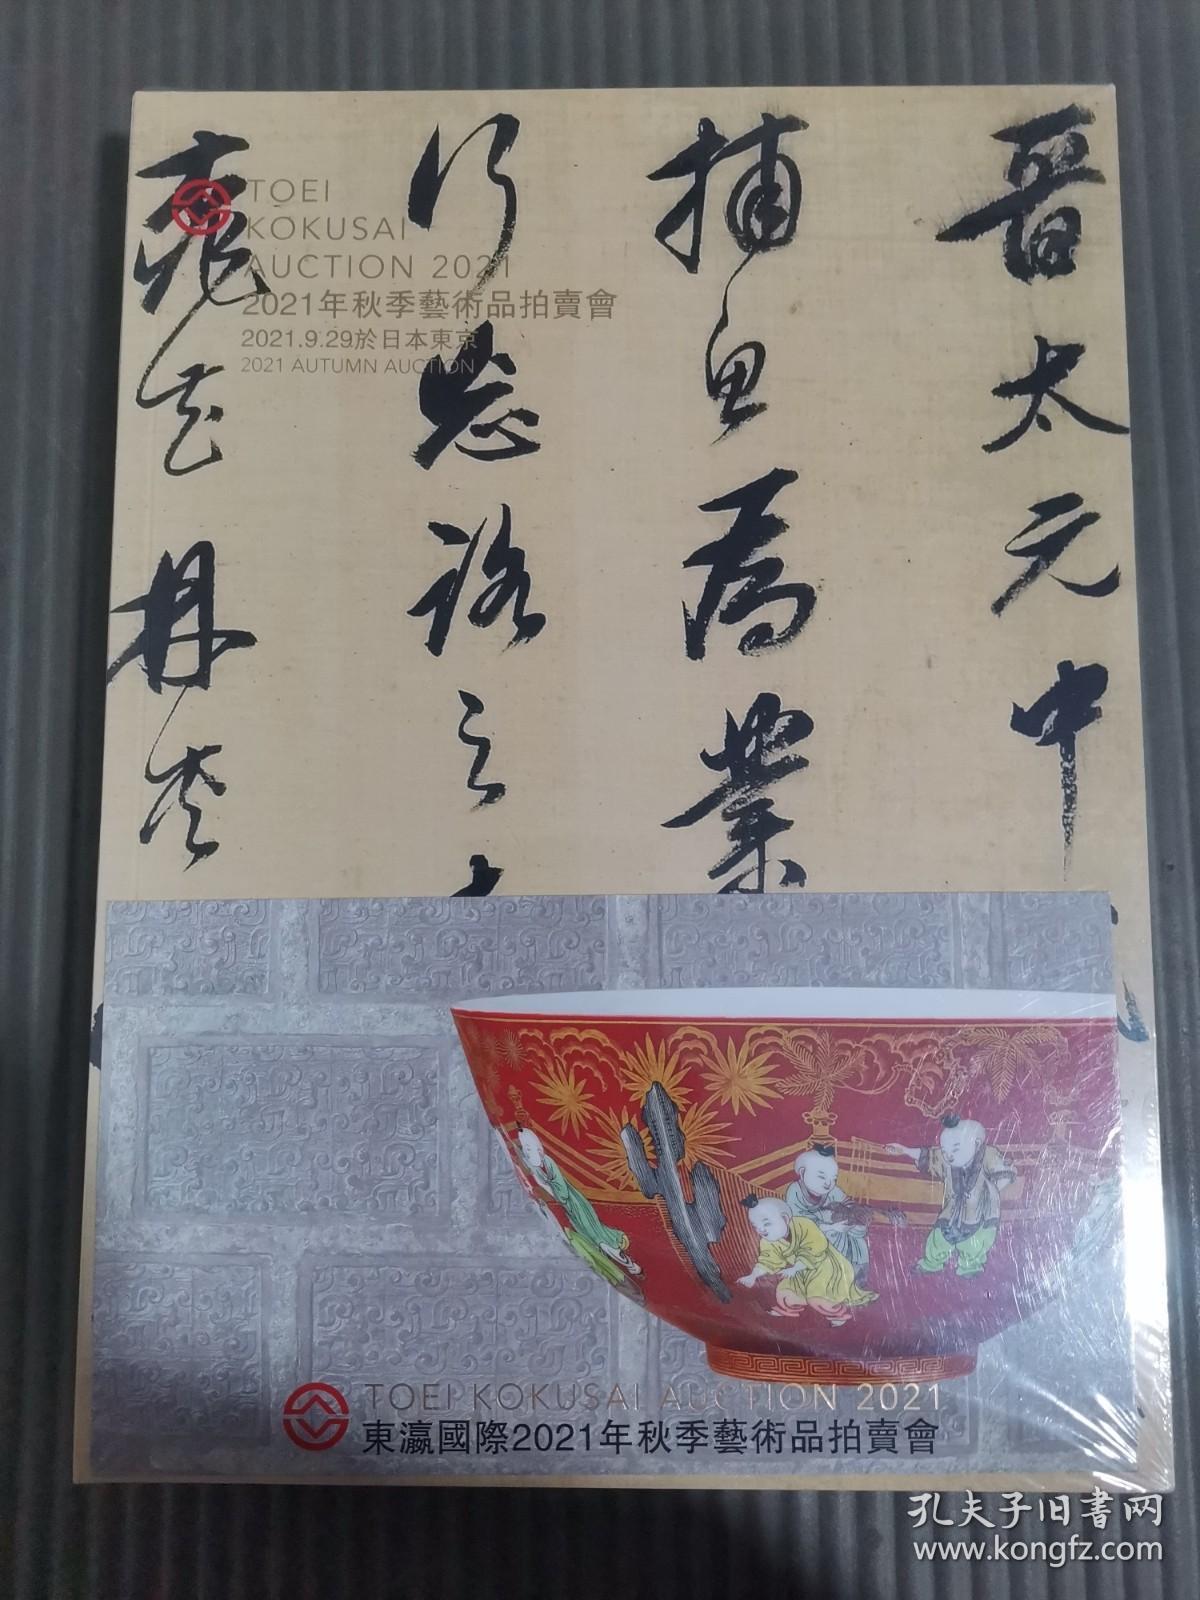 晉太元中
捕魚為業
行忘路之
TOEI
KOKUSAI
AUCTION 2021
2021年秋季藝術品拍賣會
2021.9.29於日本東京
2021 AUTUMN AUCTION
TOEI KOKUSAI AUCTION 2021
東瀛國際2021年秋季藝術品拍賣會
孔夫子旧书网
www.kongfz.com